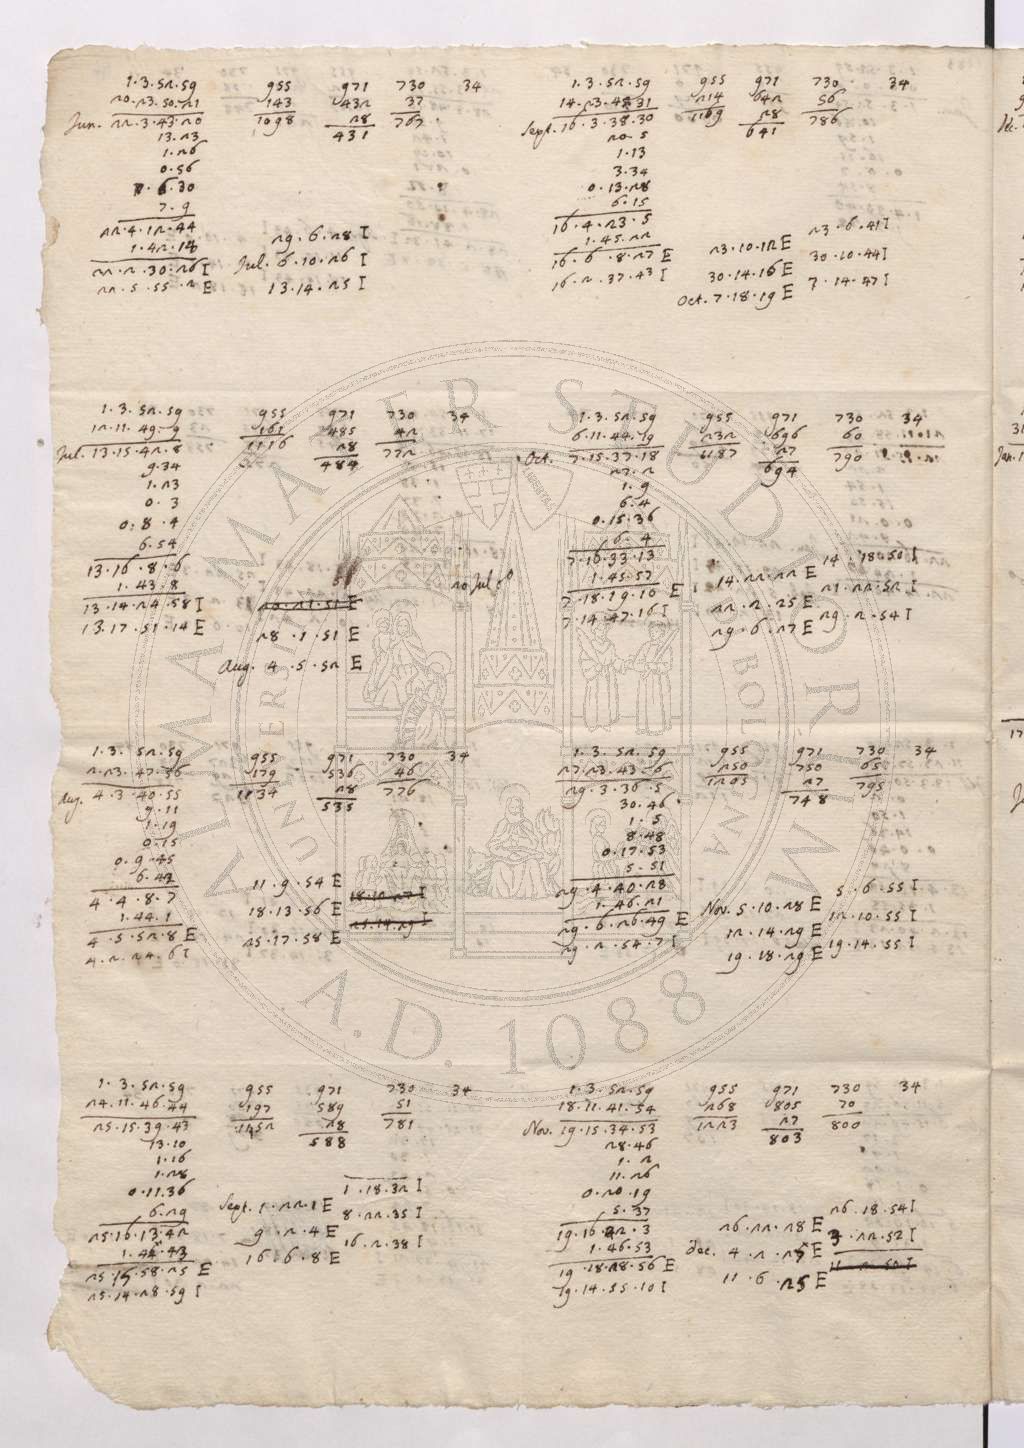 1.3.52.59 955 971 730 34
20.23.50.21 143 432 37
Jun. 22.3.43.20 1098 28 767
13.23 431
1.26
0.56
6.30
7.9
22.4.12.44
1.42.18
22.2.30.26 I
22.5.55.2 E
29.6.28 I
Jul. 6.10.26 I
13.14.25 I
1.3.52.59 955 971 730 34
14.23.45.31 214 642 56
Sept. 16.3.38.30 1169 28 786
20.5 641
1.13
3.34
0.13.28
6.15
16.4.23.5
1.45.22
16.6.8.27 E
16.2.37.43 I
23.10.12 E
30.14.16 E
Oct. 7.18.19 E
23.6.41 I
30.10.44 I
7.14.47 I
1.3.52.59 955 971 730 34
12.11.49.9 161 485 42
Jul. 13.15.42.8 1116 28 772
9.34 484
1.23
0.3
0.8.4
6.54
13.16.8.6
1.43.8
13.14.24.58 I
13.17.51.14 E
20.21.51 E
28.1.51 E
Aug. 4.5.52 E
20 Jul
1.3.52.59 955 971 730 34
6.11.44.19 232 696 60
Oct. 7.15.37.18 1187 27 790
27.2 694
1.9
6.4
0.15.36
6.4
7.16.33.13
1.45.57
7.18.19.10 E
7.14.47.16 I
14.22.22 E
22.2.25 E
29.6.27 E
14.18.50 I
21.22.52 I
29.2.54 I
1.3.52.59 955 971 730 34
2.23.47.56 179 536 46
Aug. 4.3.40.55 1134 28 776
9.11 535
1.19
0.15
0.9.45
6.42
4.4.8.7
1.44.1
4.5.52.8 E
4.2.24.6 I
11.9.54 E
18.13.56 E
25.17.58 E
18.10.27 I
25.14.29 I
1.3.52.59 955 971 730 34
27.23.43.6 250 750 65
29.3.36.5 1205 27 795
30.46 748
1.5
8.48
0.17.53
5.51
29.4.40.28
1.46.21
29.6.26.49 E
29.2.54.7 I
Nov. 5.10.28 E
12.14.29 E
19.18.29 E
5.6.55 I
12.10.55 I
19.14.55 I
1.3.52.59 955 971 730 34
24.11.46.44 197 589 51
25.15.39.43 1152 28 781
13.10 588
1.16
1.28
0.11.36
6.29
25.16.13.42
1.44.43
25.15.58.25 E
25.14.28.59 I
Sept. 1.22.1 E
9.2.4 E
16.6.8 E
1.18.32 I
8.22.35 I
16.2.38 I
1.3.52.59 955 971 730 34
18.11.41.54 268 805 70
Nov. 19.15.34.53 1223 27 800
28.46 803
1.2
11.26
0.20.19
5.37
19.16.42.3
1.46.53
19.18.28.56 E
19.14.55.10 I
26.22.28 E
Dec. 4.2.25 E
11.6.25 E
26.18.54 I
3.22.52 I